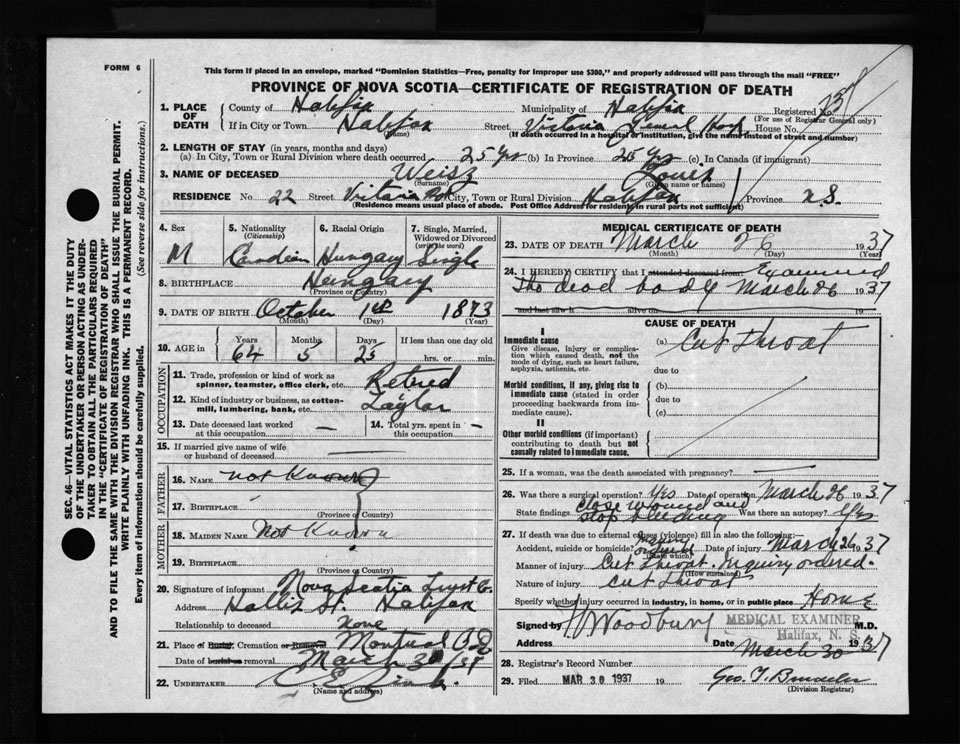 FORM 6
This form if placed in an envelope, marked "Dominion Statistics—Free, penalty for improper use $300," and properly addressed will pass through the mail "FREE"
PROVINCE OF NOVA SCOTIA—CERTIFICATE OF REGISTRATION OF DEATH
1. PLACE OF DEATH County of Halifax Municipality of Halifax Registered
(For use of Registrar General only)
If in City or Town Halifax Street Victoria Genrl Hosp House No.
(Name) (If death occurred in a hospital or institution, give the name instead of street and number)
2. LENGTH OF STAY (in years, months and days)
(a) In City, Town or Rural Division where death occurred 25 yrs (b) In Province 25 yrs (c) In Canada (if immigrant)
3. NAME OF DECEASED Weisz Louis
(Surname) (Given name or names)
RESIDENCE No. 22 Street Victoria Rd City, Town or Rural Division Halifax Province N.S.
(Residence means usual place of abode. Post Office Address for residency in rural parts not sufficient)
4. Sex 5. Nationality (Citizenship) 6. Racial Origin 7. Single, Married, Widowed or Divorced (write the word)
M Canadian Hungary Single
8. BIRTHPLACE Hungary
(Province or Country)
9. DATE OF BIRTH October 1st 1873
(Month) (Day) (Year)
10. AGE in Years Months Days If less than one day old
64 5 25 hrs. or min.
OCCUPATION
11. Trade, profession or kind of work as spinner, teamster, office clerk, etc. Retired
12. Kind of industry or business, as cotton-mill, lumbering, bank, etc. Taylor
13. Date deceased last worked at this occupation — 14. Total yrs. spent in this occupation —
15. If married give name of wife or husband of deceased
FATHER
16. NAME not Known
17. BIRTHPLACE
(Province or Country)
MOTHER
18. MAIDEN NAME Not Known
19. BIRTHPLACE
(Province or Country)
20. Signature of informant Nova Scotia Trust Co.
Address Hollis St. Halifax
Relationship to deceased None
21. Place of Burial, Cremation or Removal Montreal P.Q
Date of burial or removal March 30/37
22. UNDERTAKER
(Name and address)
MEDICAL CERTIFICATE OF DEATH
23. DATE OF DEATH March 26 1937
(Month) (Day) (Year)
24. I HEREBY CERTIFY that I attended deceased from Examined
The dead body March 26 1937
and last saw h alive on
CAUSE OF DEATH
I
Immediate cause
Give disease, injury or complication which caused death, not the mode of dying, such as heart failure, asphyxia, asthenia, etc.
(a) Cut throat
due to
Morbid conditions, if any, giving rise to immediate cause (stated in order proceeding backwards from immediate cause).
(b)
due to
(c)
II
Other morbid conditions (if important) contributing to death but not causally related to immediate cause.
25. If a woman, was the death associated with pregnancy?
26. Was there a surgical operation? Yes Date of operation March 26 1937
State findings close wound and stop bleeding Was there an autopsy? Yes
27. If death was due to external causes (violence) fill in also the following:—
Accident, suicide or homicide? inquiry ordered Date of injury March 26 37
(State which)
Manner of injury Cut throat. Inquiry ordered.
(How sustained)
Nature of injury cut throat
Specify whether injury occurred in industry, in home, or in public place Home
Signed by Woodbury M.D.
MEDICAL EXAMINER
Halifax, N. S.
Address Date March 30 1937
28. Registrar's Record Number
29. Filed MAR 30 1937 19
(Division Registrar)
SEC. 46—VITAL STATISTICS ACT MAKES IT THE DUTY
OF THE UNDERTAKER OR PERSON ACTING AS UNDER-
TAKER TO OBTAIN ALL THE PARTICULARS REQUIRED
IN THE "CERTIFICATE OF REGISTRATION OF DEATH"
AND TO FILE THE SAME WITH THE DIVISION REGISTRAR WHO SHALL ISSUE THE BURIAL PERMIT.
WRITE PLAINLY WITH UNFADING INK. THIS IS A PERMANENT RECORD.
Every item of information should be carefully supplied. (See reverse side for instructions.)